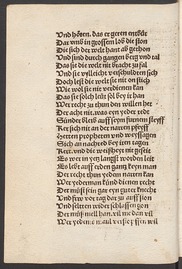 Vnd hören. das er geren entöde
Dar vmb in grossem lob der ston
Die sich der welt hant ab gethon
Vnd sind durch gangen berg vnd tal
Das sie die welt nit bracht zu fal
Vnd sie villeicht verschuldten sich
Doch lest die welt sie nit on stich
Wie wol sie nit verdienen kan
Das sie solch lüt sol bey ir han
Wer recht zu thun den willen het
Der acht nit. was eyn yeder redt
Sunder bleib auff seym fürnem steyff
Ker sich nit an der narren pfeyff
Hetten propheten vnd wyssagen
Sich an nachred bey irn tagen
Kert. vnd die weißheyt nit geseit
Es wer in yetz langst worden leit
Es lebt auff erden gantz keyn man
Der recht thun yedem narren kan
Wer yederman künd dienen recht
Der müst sein gar eyn guter knecht
Vnd frü vor tag dar zu auff ston
Vnd selten wider schloffen gon
Der müß mel han. vil me dan vil